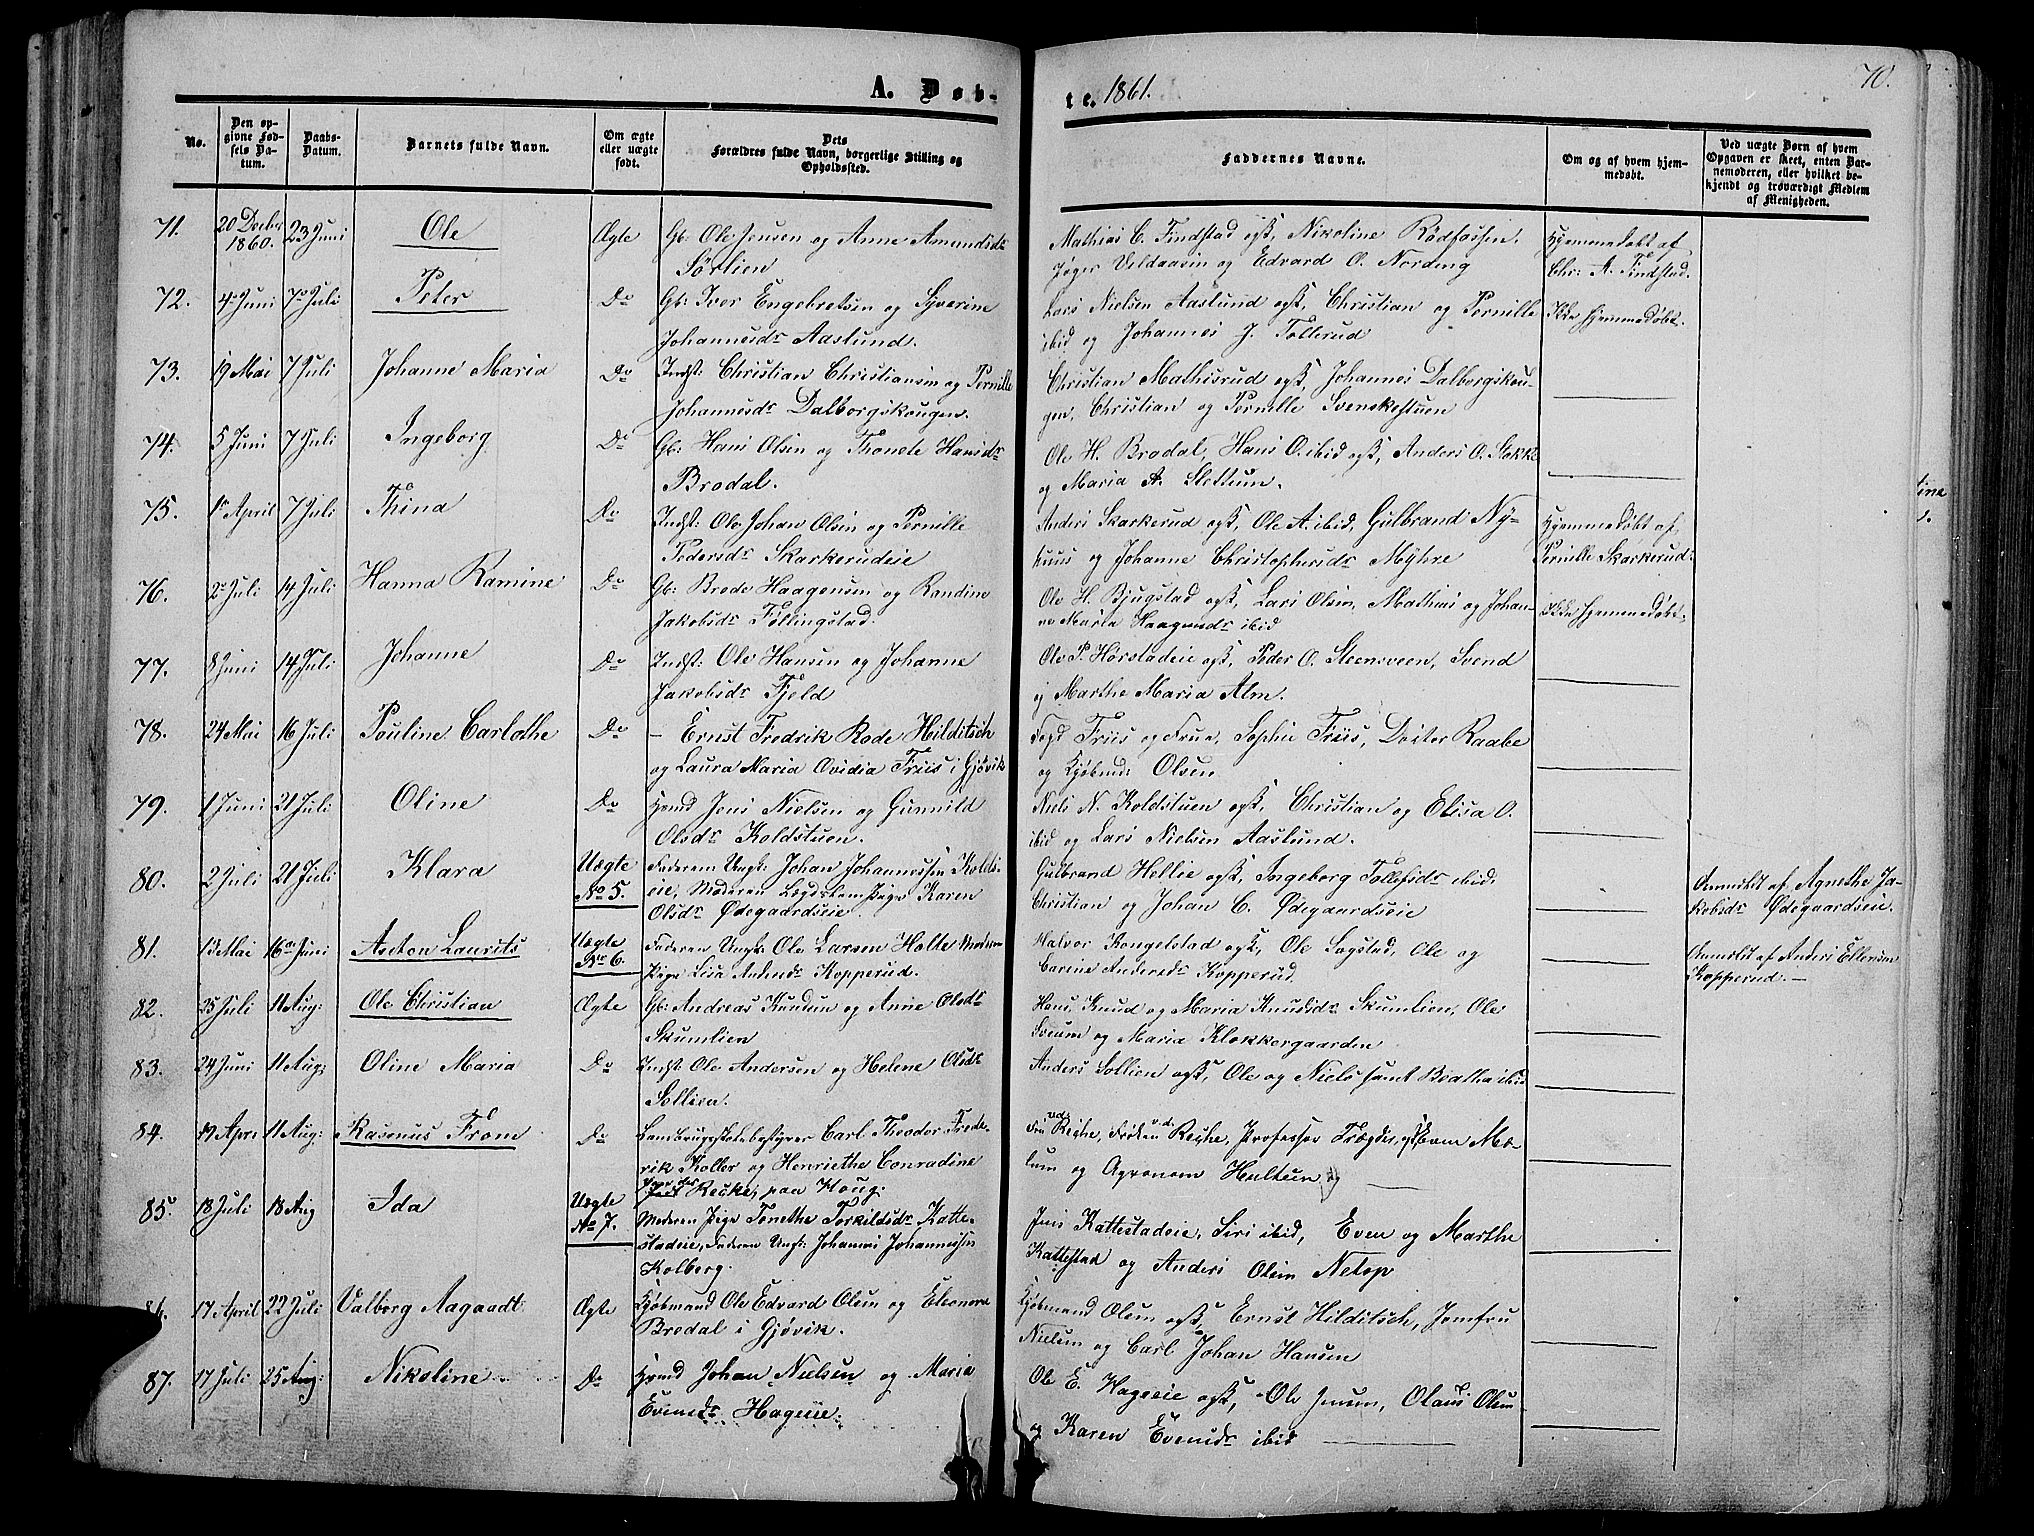 A. Døb-
te. 1861.
70.
No.
Den op-
givne Fød-
sels Da-
tum.
Daabs-
Datum.
Barnets fulde Navn.
Om ægte
eller uægte
født.
Dets
Forældres fulde Navn, borgerlige Stilling og
Opholdssted.
Faddernes Navne.
Om og af hvem hjem-
medøbt.
Ved uægte Børn af hvem
Opgaven er skeet, enten Bar-
nemoderen, eller hvilket be-
kjendt og troværdigt Medlem
af Menigheden.
71. 20 Decbr 1860. 23 Juni Ole Ægte Gb: Ole Jensen og Anne Amundsdr
Sørlien
Mathias C. Findstad ogst, Nikoline Rødfossen,
og Edvard O. Nording
Hjemmedøbt af
Chr: A. Findstad.
72. 4de Juni 7de Juli Peter Do Gb: Iver Engebretsen og Syverine
Johannesdr Aaslund.
Lars Nielsen Aaslund ogst, Christian og Pernille
ibid og Johannes J. Tollerud
Ikke hjemmedøbt.
73. 19 Mai 7 Juli Johanne Maria Do Indst: Christian Christiansen og Pernille
Johannesdr Dalborgskougen.
Christian Mathisrud ogst, Johannes Dalborgskou-
gen, Christian og Pernille Svenskestuen
74. 5 Juni 7 Juli Ingeborg Do Gb: Hans Olsen og Thonete Hansdr
Brodal.
Ole H. Brodal, Hans O. ibid ogst, Anders O. Slokke
og Maria A. Slettum.
75. 1ste April 7 Juli Thina Do Indst: Ole Johan Olsen og Pernille
Pedersdr Skarkerudeie
Anders Skarkerud ogst, Ole A. ibid, Gulbrand Ny-
huus og Johanne Christophersdr Myhre
Hjemmedøbt af
Pernille Skarkerud.
76. 2de Juli 14 Juli Hanna Ramine Do Gb: Brede Haagensen og Randine
Jakobsdr Føllingstad.
Ole H. Bjugstad ogst, Lars Olsen, Mathias og Johan-
ne Maria Haagensdr ibid
Ikke hjemmedøbt.
77. 8 Juni 14 Juli Johanne Do Indst: Ole Hansen og Johanne
Jakobsdr Fjeld
Ole P. Horstadeie ogst, Peder O. Steensveen, Svend
og Marthe Maria Alm.
78. 24 Mai 16 Juli Pouline Carlothe Do – Ernst Fredrik Rode Hilditsch
og Laura Maria Ovidia Friis i Gjøvik
Fogd Friis og Frue, Sophie Friis, Doktor Raabe
og Kjøbmd: Olsen
79. 1 Juni 21 Juli Oline Do Hmd Jens Nielsen og Gunnild
Olsdr Koldstuen.
Niels N. Koldstuen ogst, Christian og Elisa O.
ibid og Lars Nielsen Aaslund.
80. 2 Juli 21 Juli Klara Uægte
No 5.
Faderen Ungk: Johan Johannessen Kolds-
eie, Moderen Pige Karen
Olsdr Ødegaardseie.
Gulbrand Hellie ogst, Ingeborg Tollefsdr ibid.
Christian og Johan C. Ødegaardseie
Anmeldt af Agnethe Ja-
kobsdr Ødegaardseie.
81. 13 Mai 16de Juni Anton Laurits Uægte
No 6.
Faderen Ungk: Ole Larsen Holte Moderen
Pige Lisa Andersdr Kopperud.
Halvor Kongelstad ogst, Ole Sogstad, Ole og
Carine Andersdr Kopperud.
Anmeldt af Anders Ellevsen
Kopperud. –
82. 25 Juli 11 Aug: Ole Christian Ægte Gb: Andreas Knudsen og Anne Olsdr
Skumlien
Hans, Knud og Maria Knudsdr Skumlien, Ole
Sveum og Maria Klokkergaarden
83. 24 Juni 11 Aug: Oline Maria Do Indst: Ole Andersen og Helene Olsdr
Sollien.
Anders Sollien ogst, Ole og Niels samt Beatha ibid
84. 19 April 11 Aug: Rasmus From Do Landbrugsskolebestyrer Carl Theodor Frede-
rik Koller og Henriethe Conradine
Recke, paa Houg.
Fru v.d. Recke, Frøken v.d. Recke, Professor
og Agronom Hulteen
85. 18 Juli 18 Aug Ida Uægte
No 7.
Moderen Pige Tonethe Torkildsdr Katte-
stadeie, Faderen Ungk: Johannes Johannessen
Kolberg.
Jens Kattestadeie, Siri ibid, Even og Marthe
Kattestad og Anders Olsen Netop
86. 17 April 22 Juli Valborg Aagaadt Ægte Kjøbmand Ole Edvard Olsen og Eleonora
Bredal i Gjøvik.
Kjøbmand Olsen ogst, Ernst Hilditsch, Jomfru
Nielsen og Carl Johan Hansen
87. 17 Juli 25 Aug: Nikoline Do Hmd Johan Nielsen og Maria
Evensdr Hageeie.
Ole E. Hageeie ogst, Ole Jensen, Olaus Olsen
og Karen Evensdr ibid